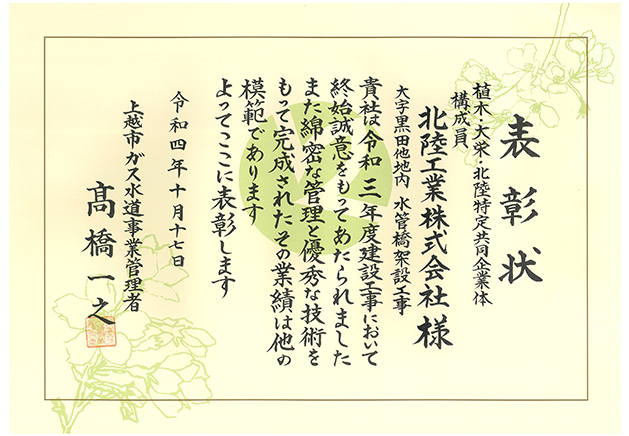 表彰状
植木・大栄・北陸特定共同企業体
構成員
北陸工業株式会社 様
大字黒田他地内 水管橋架設工事
貴社は令和三年度建設工事において
終始誠意をもってあたられました
また綿密な管理と優秀な技術を
もって完成されたその業績は他の
模範であります
よってここに表彰します
令和四年十月十七日
上越市ガス水道事業管理者
髙橋一之